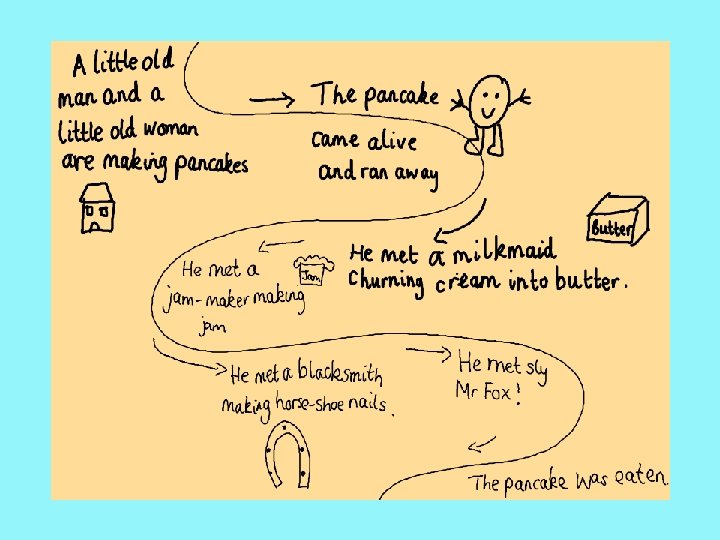 A little old
man and a
little old woman
are making pancakes
The pancake
came alive
and ran away
Butter
He met a milkmaid
churning cream into butter.
He met a
jam-maker making
jam
Jam
He met a blacksmith
making horse-shoe nails.
He met sly
Mr Fox!
The pancake was eaten.